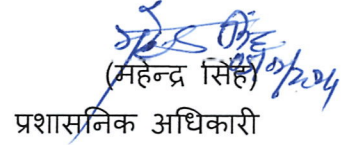 (महेन्द्र सिंह)
प्रशासनिक अधिकारी